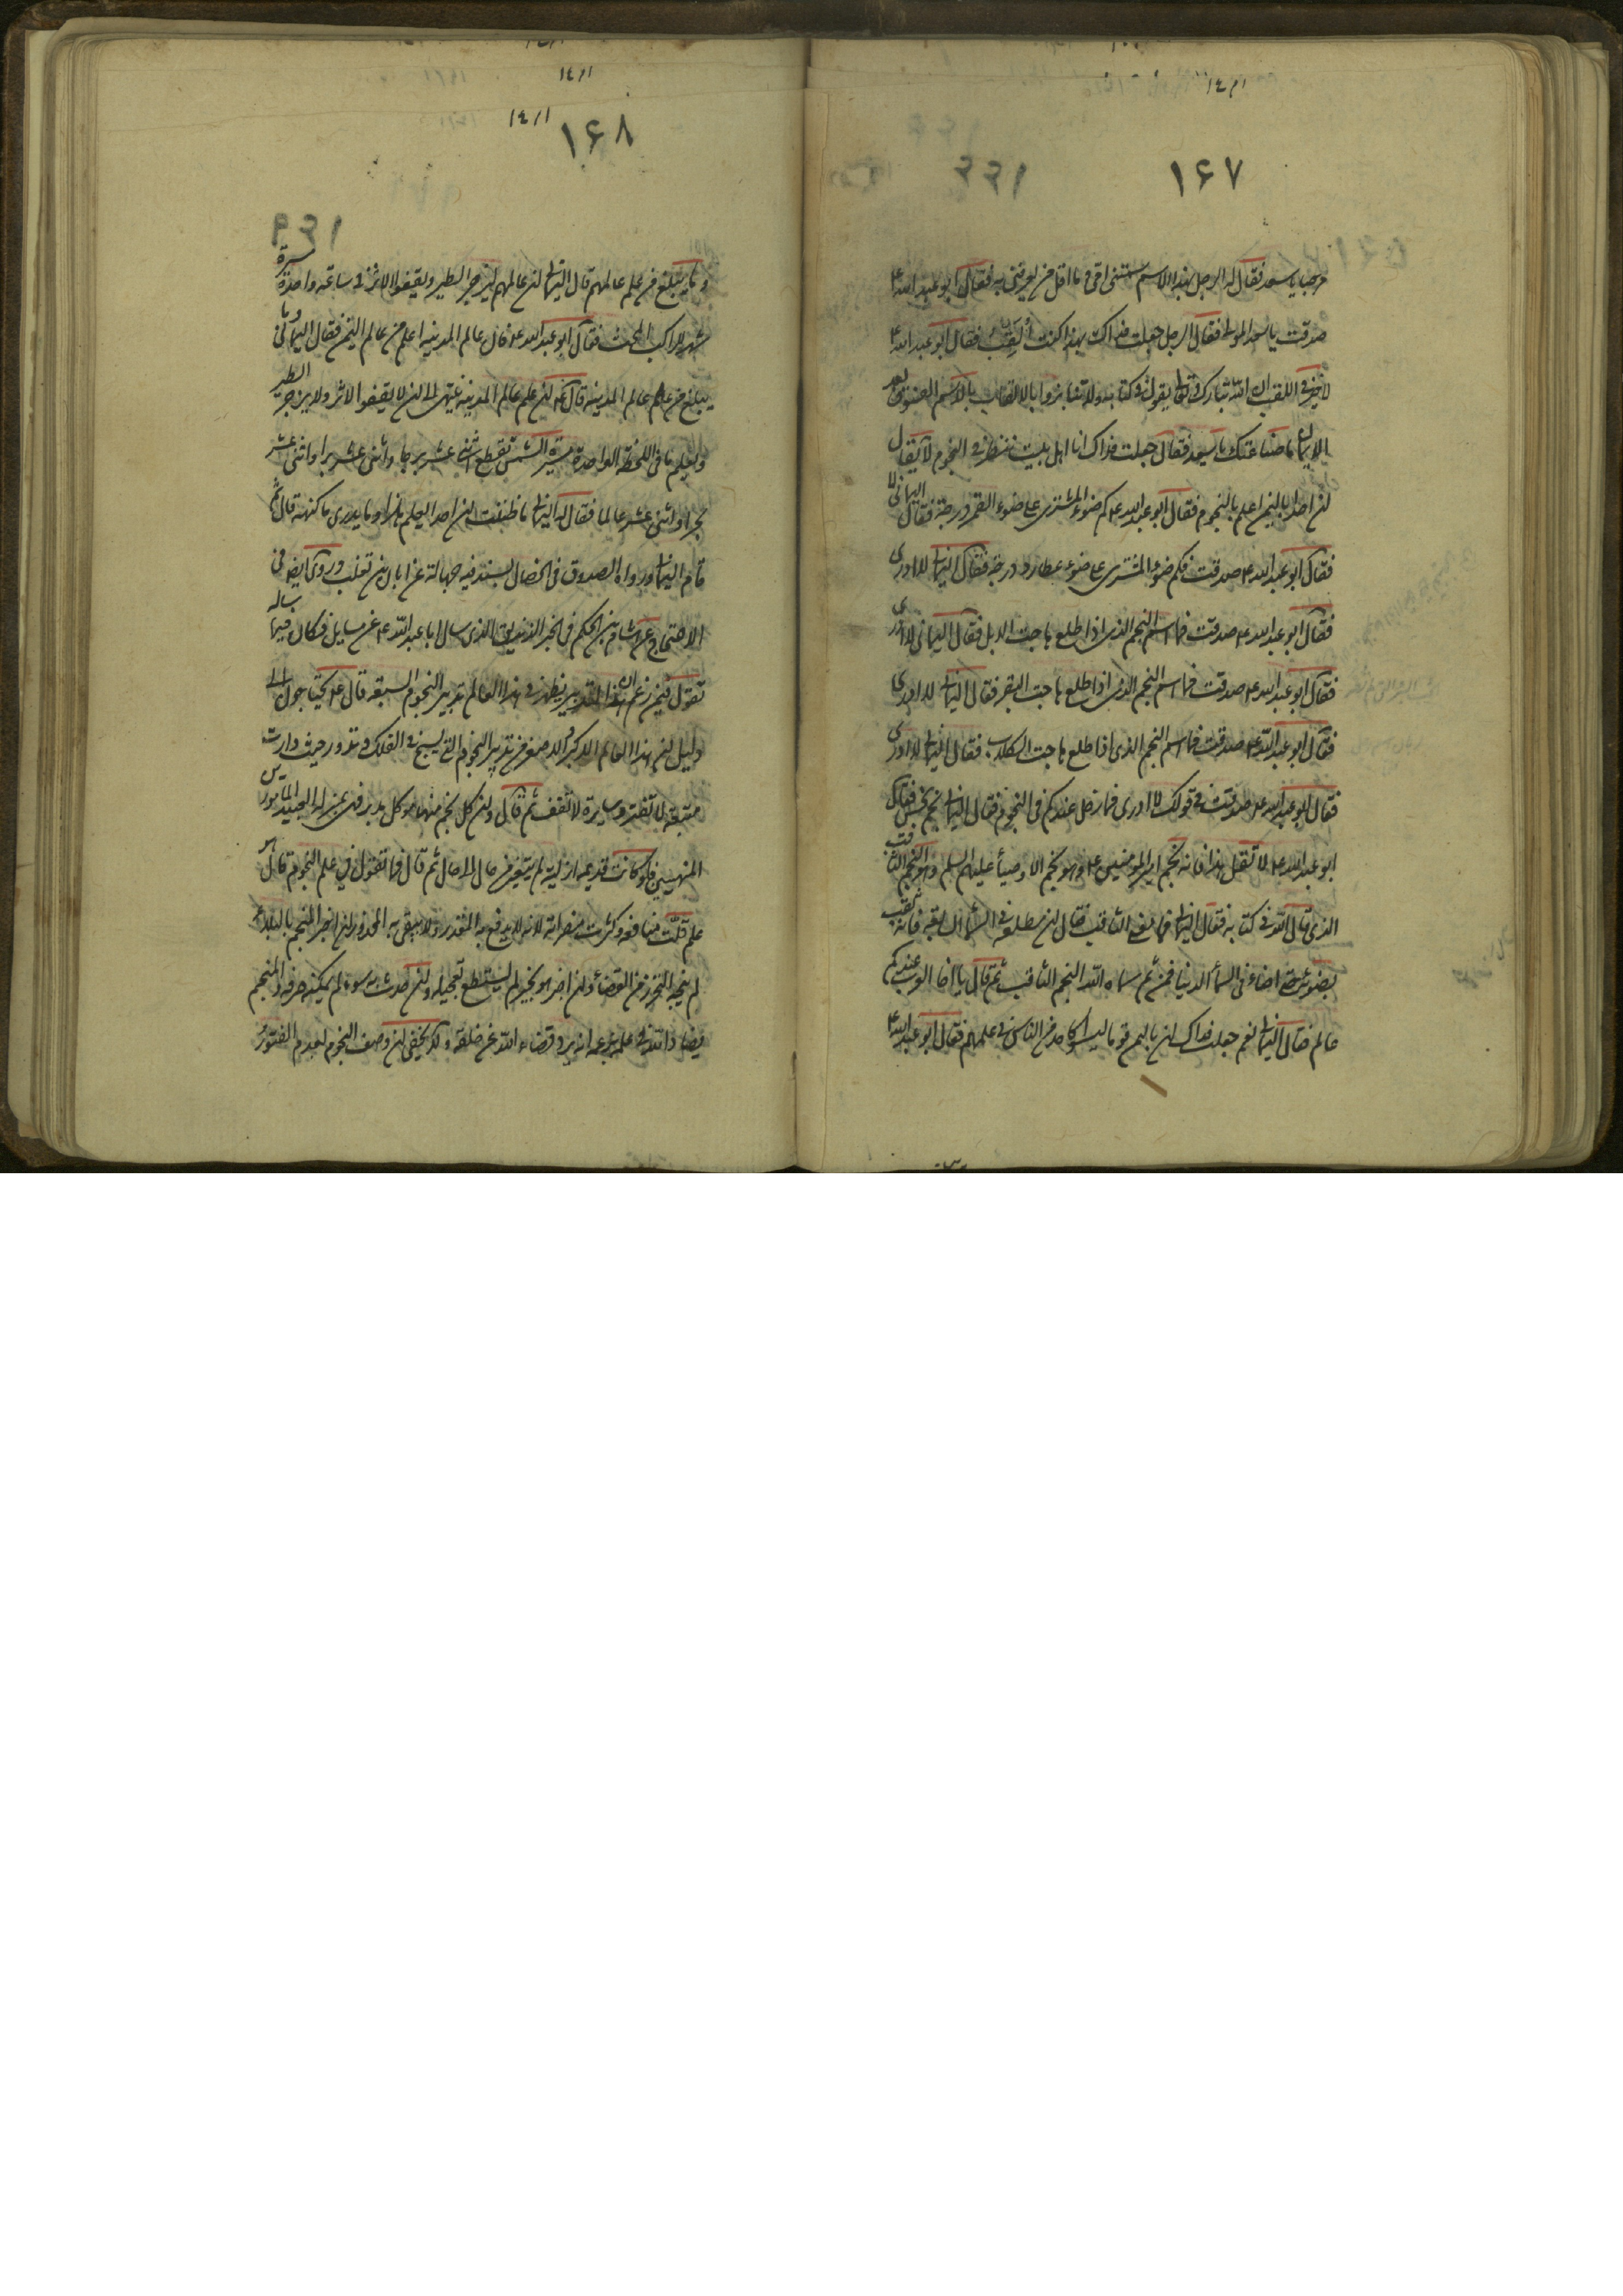 ١٦٧
مرحبا يا سعد فقال له الرجل بهذا الاسم سمتنى امى و ما اقل من يعرفنى به فقال ابو عبد الله ع
صدقت يا سعد المولى فقال الرجل جعلت فداك بهذا كنت اُلَقَّبُ فقال ابو عبد الله ع
لا خير فى اللقب ان الله تبارك و تعالى يقول فى كتابه و لا تنابزوا بالالقاب بئس الاسم الفسوق بعد
الايمان ما صناعتك يا سعد فقال جعلت فداك انا اهل بيت ننظر فى النجوم لا يقال
ان احدا باليمن اعلم بالنجوم فقال ابو عبد الله ع كم ضوء المشترى على ضوء القمر درجة فقال اليمانى لا ادرى
فقال ابو عبد الله ع صدقت فكم ضوء المشترى على ضوء عطارد درجة فقال اليمانى لا ادرى
فقال ابو عبد الله ع صدقت فما اسم النجم الذى اذا طلع هاجت الابل فقال اليمانى لا ادرى
فقال ابو عبد الله ع صدقت فما اسم النجم الذى اذا طلع هاجت البقر فقال اليمانى لا ادرى
فقال ابو عبد الله ع صدقت فما اسم النجم الذى اذا طلع هاجت الكلاب فقال اليمانى لا ادرى
فقال ابو عبد الله ع صدقت فى قولك لا ادرى فما زحل عندكم فى النجوم فقال اليمانى نجم نحس فقال
ابو عبد الله ع لا تقل هذا فانه نجم امير المومنين ع و هو نجم الاوصياء عليهم السلم و هو النجم الثاقب
الذى قال الله فى كتابه فقال اليمانى فما يعنى الثاقب فقال ان مطلعه فى السماء السابعة فانه ثقب
بضوئه حتى اضاء فى السماء الدنيا فمن ثم سماه الله النجم الثاقب ثم قال يا اخا العرب عندكم
عالم فقال اليمانى نعم جعلت فداك ان باليمن قوما ليسوا كاحد من الناس فى علمهم فقال ابو عبد الله ع
١٦٨
و ما يبلغ من علم عالمهم قال اليمانى ان عالمهم ليزجر الطير و يقفوا الاثر فى ساعة واحدة مسيرة
شهر للراكب المحث فقال ابو عبد الله ع فان عالم المدينه اعلم من عالم اليمن فقال اليمانى و ما
يبلغ من علم عالم المدينة قال ع ان علم عالم المدينة ينتهى الى ان لا يقفوا الاثر و لا يزجر الطير
و يعلم ما فى اللحظة الواحدة مسيرة الشمس تقطع اثنى عشر برجا و اثنى عشر برا و اثنى عشر
بحرا و اثنى عشر عالما فقال له اليمانى ما ظننت ان احدا يعلم هذا و ما يدرى ما كنهه قال ثم
قام اليمانى و رواه الصدوق فى الخصال بسند فيه جهالة عن ابان بن تغلب و روى ايضا فى
الاحتجاج عن هشام بن الحكم فى الخبر الزنديق الذى سال ابا عبد الله ع عن مسايل فكان فيما ساله
تقول فيمن زعم ان هذا التدبير يظهر فى هذا العالم تدبير النجوم السبعة قال ع يحتاجون الى
دليل ان هذا العالم الاكبر و الاصغر من تدبير النجوم التى تسبح فى الفلك و تدور حيث دارت
متعبة لا تفتر و سايرة لا تقف ثم قال و ان كل نجم منها موكل مدبر فهى بمنزلة العبيد المامورين
المنهيين فلو كانت قديمه ازليه لم يتغير من حال الى حال ثم قال فما تقول فى علم النجوم قال هو
علم قلّت منافعه و كثرت مضراته لانه لا يدفع به المقدور و لا يتقى به المحذور ان اخبر المنجم بالبلاء
لم ينجه التحرز من القضاء و ان اخبر هو بخير لم يستطع تعجيله و ان حدث به سوء لم يمكنه صرفه و المنجم
يضاد الله فى علمه بزعمه انه يرد قضاء الله عن خلقه و لا يخفى ان وصف النجوم بعدم الفتور